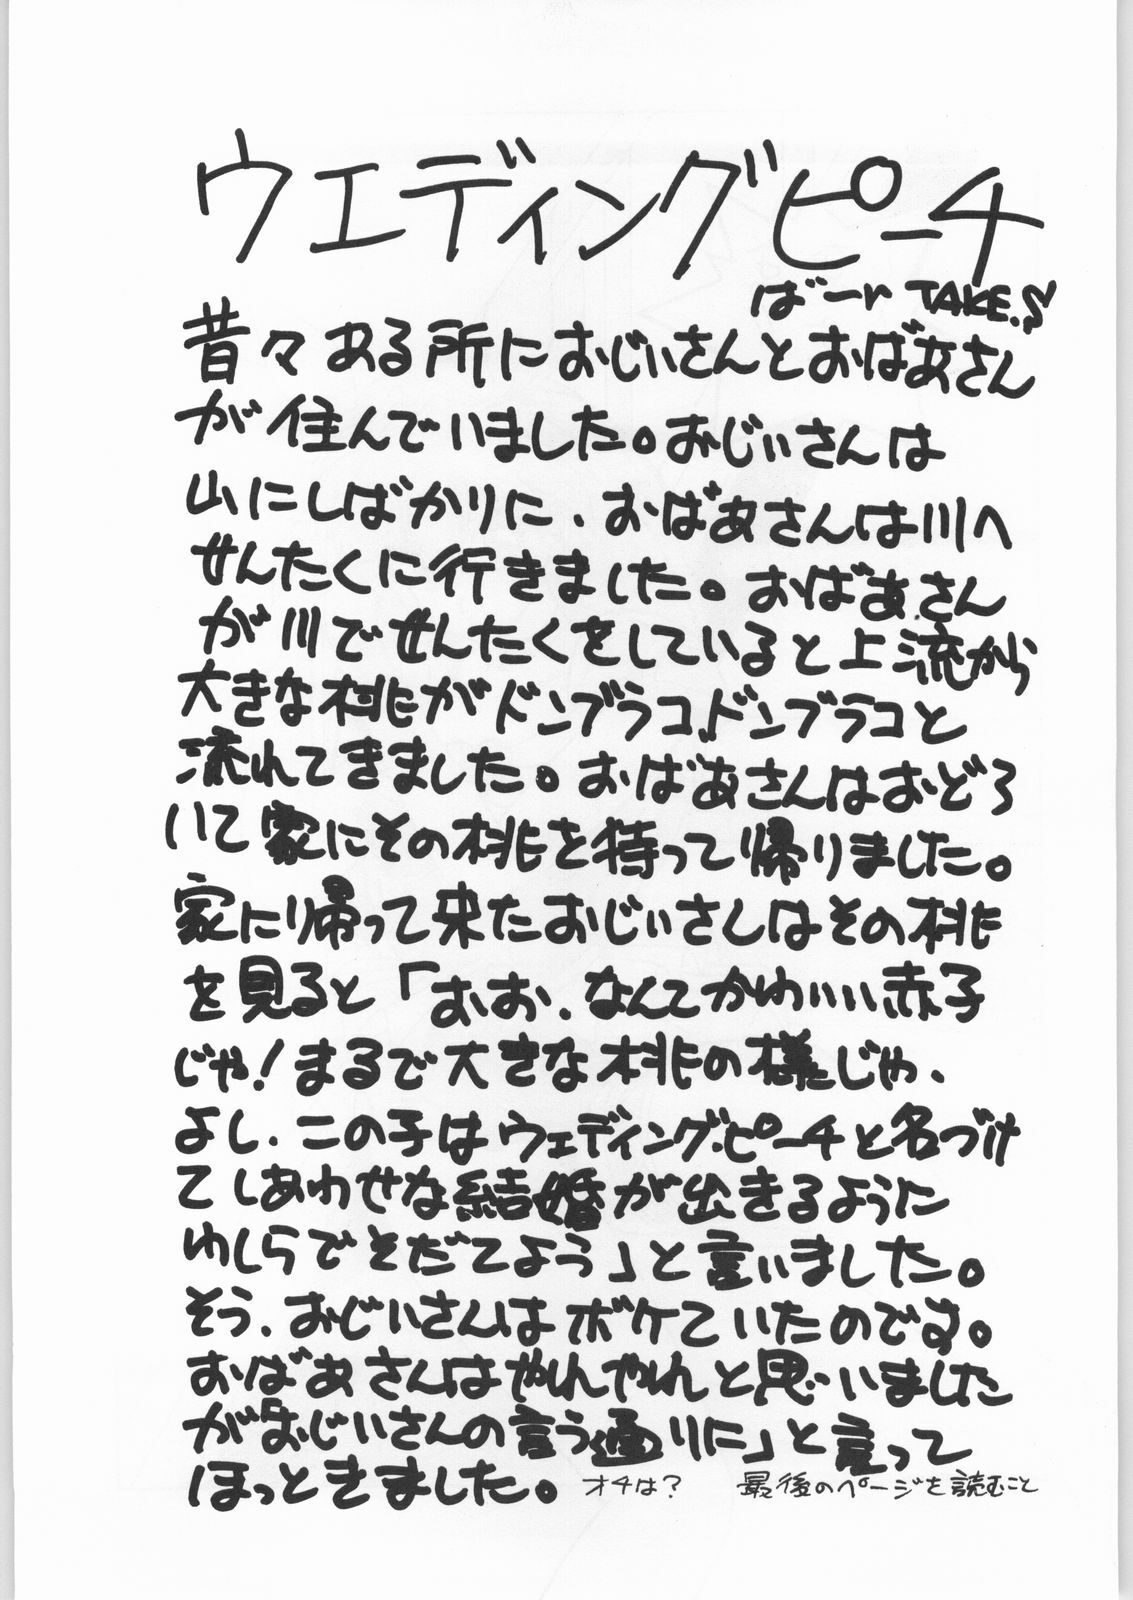 ウエディングピーチ
ばーr TAKE.S
昔々ある所におじいさんとおばあさん
が住んでいました。おじいさんは
山にしばかりに、おばあさんは川へ
せんたくに行きました。おばあさん
が川でせんたくをしていると上流から
大きな桃がドンブラコ、ドンブラコと
流れてきました。おばあさんはおどろ
いて家にその桃を持って帰りました。
家に帰って来たおじいさんはその桃
を見ると「おお、なんてかわいい赤子
じゃ!まるで大きな桃の様じゃ、
よし、この子はウェディング・ピーチと名づけ
てしあわせな結婚が出きるように
わしらでそだてよう」と言いました。
そう、おじいさんはボケていたのです。
おばあさんはやれやれと思いました
が「おじいさんの言う通りに」と言って
ほっときました。 オチは? 最後のページを読むこと